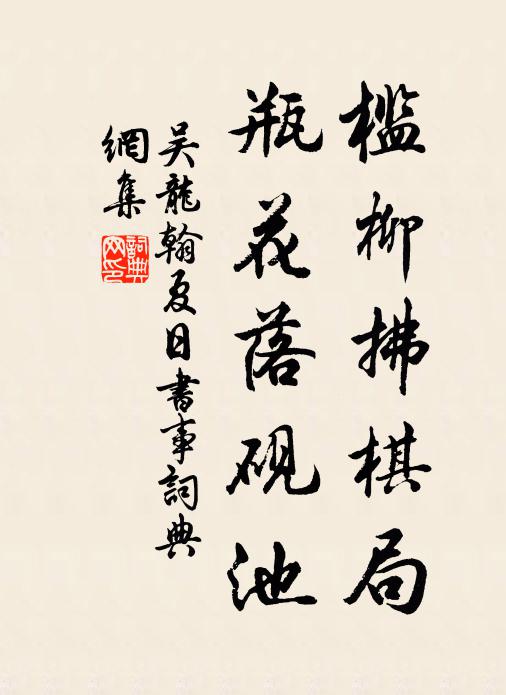 檻柳拂棋局
瓶花落硯池
吳龍翰夏日書事詞典
網集
詞典網印